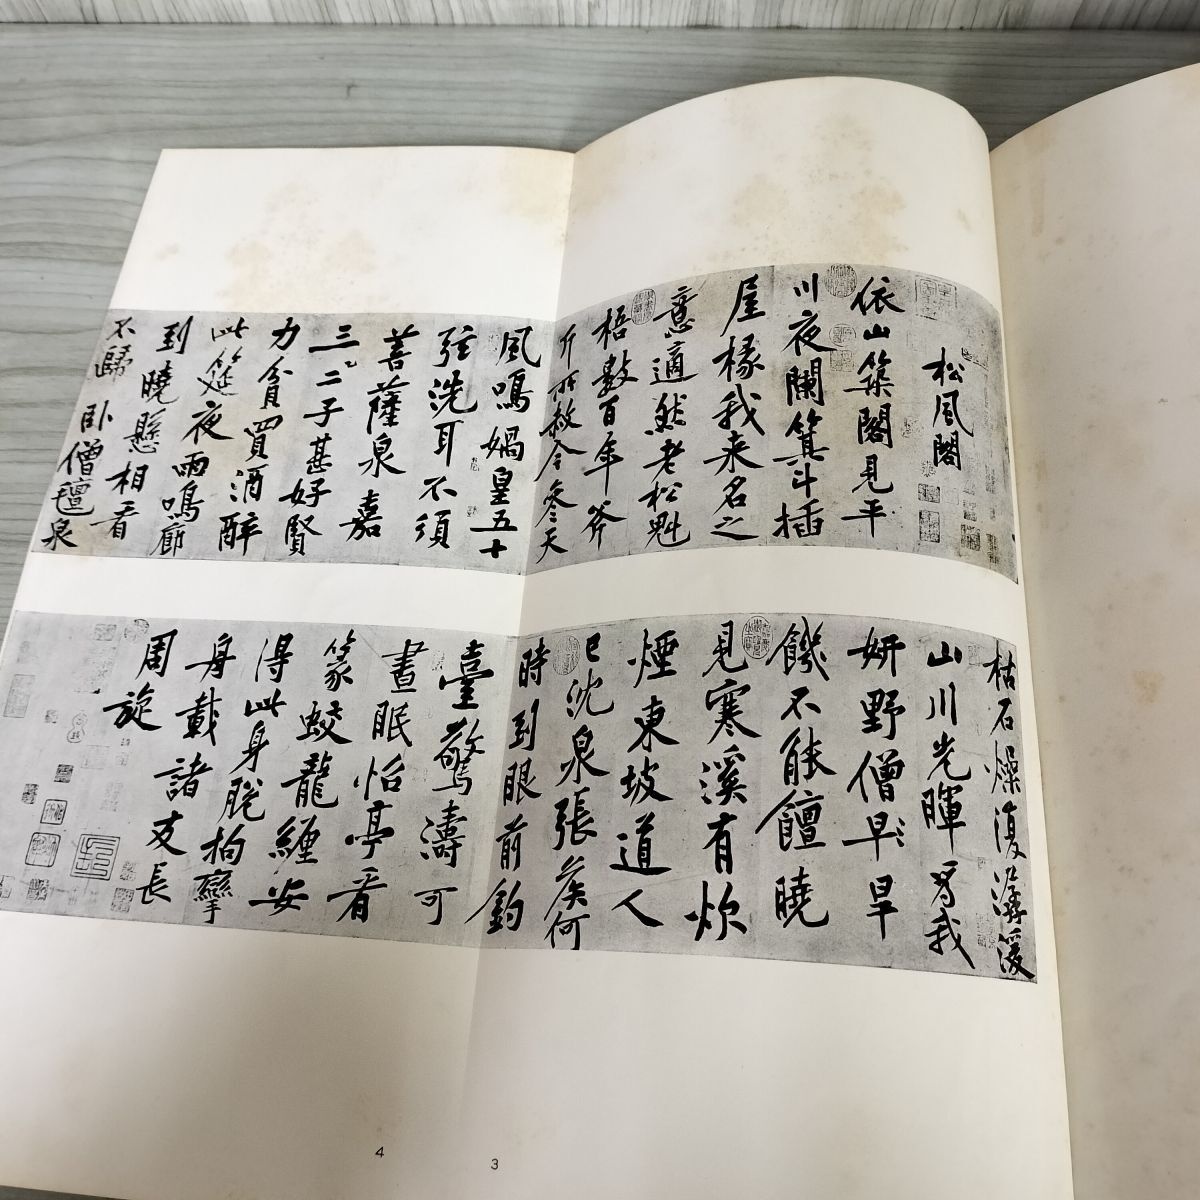 松風閣
依山築閣見平
川夜闌箕斗插
屋椽我来名之
意適然老松魁
梧數百年斧
斤所赦今參天
風鳴媧皇五十
弦洗耳不須
菩薩泉嘉
三〻二子甚好賢
力貧買酒醉
此筵夜雨鳴廊
到曉懸相看
不歸臥僧氊泉
枯石燥復潺湲
山川光暉為我
妍野僧早〻旱
饑不能饘曉
見寒溪有炊
煙東坡道人
已沈泉張侯何
時到眼前釣
臺驚濤可
晝眠怡亭看
篆蛟龍纏安
得此身脫拘攣
舟載諸友長
周旋
4
3